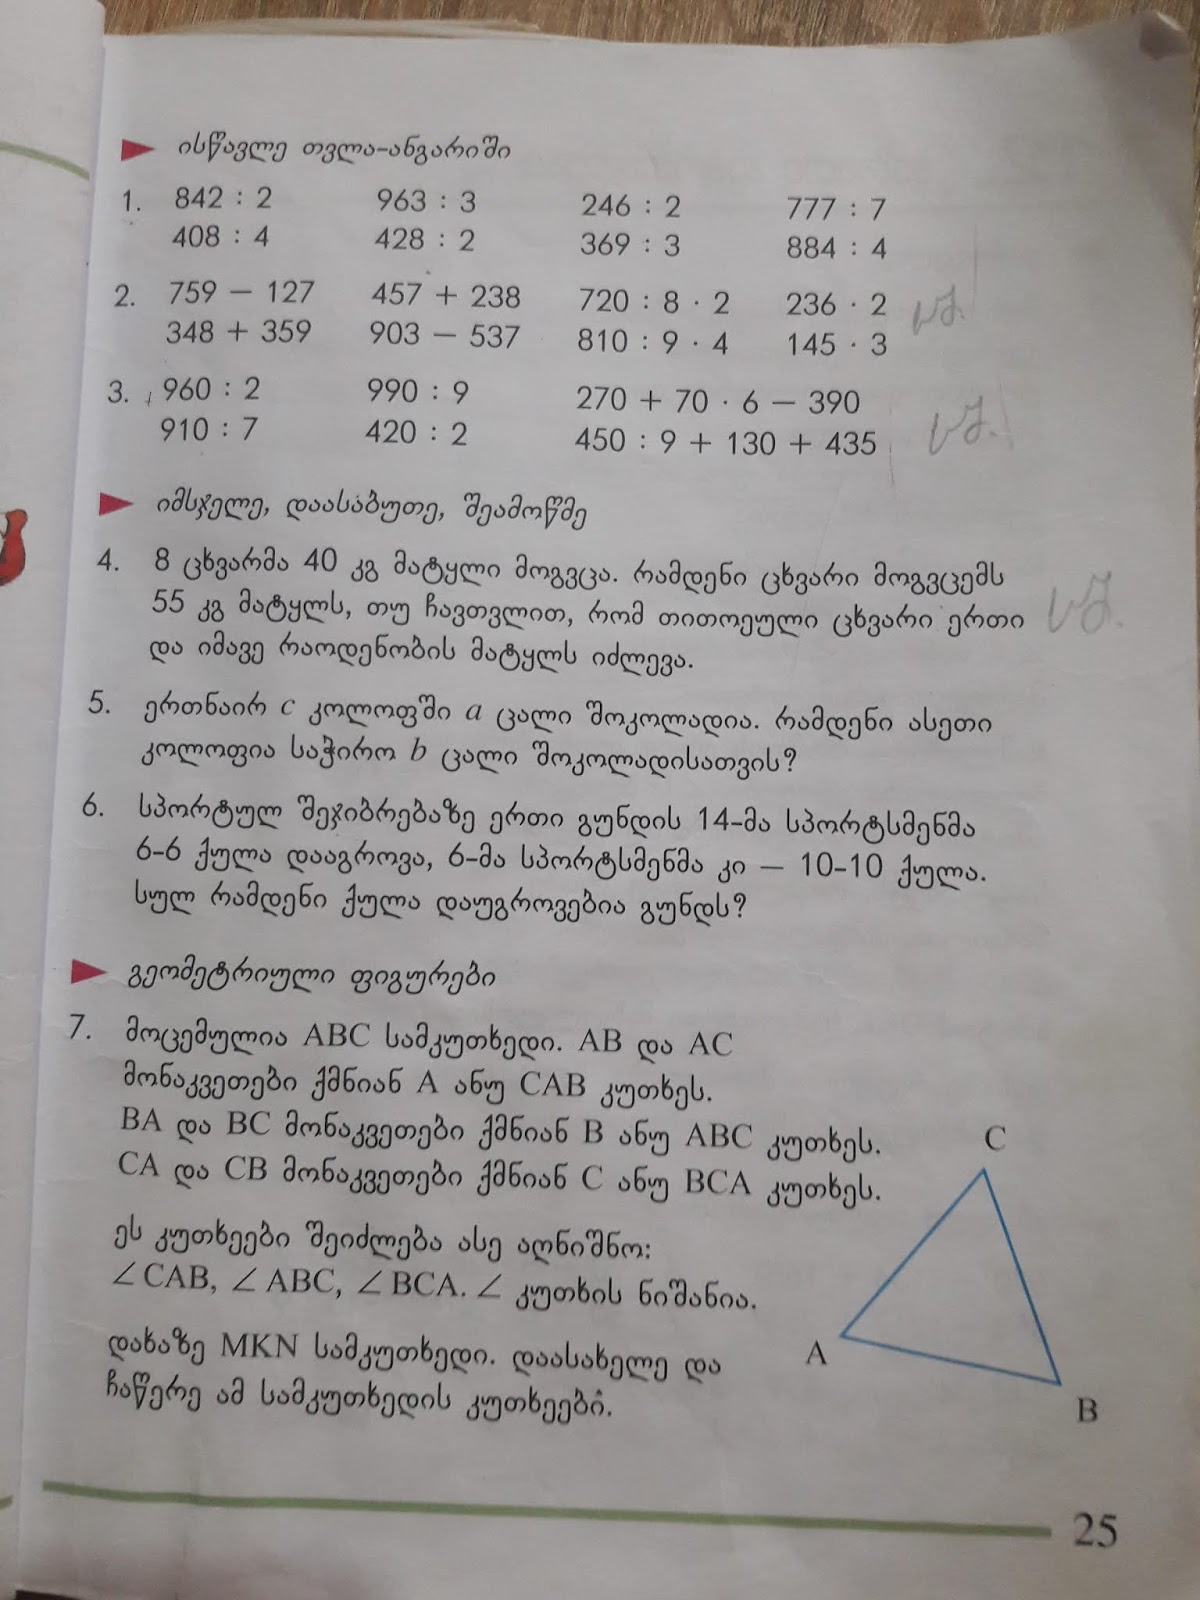 ისწავლე თვლა-ანგარიში
1. 842 : 2 963 : 3 246 : 2 777 : 7
408 : 4 428 : 2 369 : 3 884 : 4
2. 759 — 127 457 + 238 720 : 8 · 2 236 · 2 სჯ.
348 + 359 903 — 537 810 : 9 · 4 145 · 3
3. 960 : 2 990 : 9 270 + 70 · 6 — 390
910 : 7 420 : 2 450 : 9 + 130 + 435 სჯ.
იმსჯელე, დაასაბუთე, შეამოწმე
4. 8 ცხვარმა 40 კგ მატყლი მოგვცა. რამდენი ცხვარი მოგვცემს
55 კგ მატყლს, თუ ჩავთვლით, რომ თითოეული ცხვარი ერთი სჯ.
და იმავე რაოდენობის მატყლს იძლევა.
5. ერთნაირ c კოლოფში a ცალი შოკოლადია. რამდენი ასეთი
კოლოფია საჭირო b ცალი შოკოლადისათვის?
6. სპორტულ შეჯიბრებაზე ერთი გუნდის 14-მა სპორტსმენმა
6-6 ქულა დააგროვა, 6-მა სპორტსმენმა კი — 10-10 ქულა.
სულ რამდენი ქულა დაუგროვებია გუნდს?
გეომეტრიული ფიგურები
7. მოცემულია ABC სამკუთხედი. AB და AC
მონაკვეთები ქმნიან A ანუ CAB კუთხეს.
BA და BC მონაკვეთები ქმნიან B ანუ ABC კუთხეს.
CA და CB მონაკვეთები ქმნიან C ანუ BCA კუთხეს.
ეს კუთხეები შეიძლება ასე აღნიშნო:
∠CAB, ∠ABC, ∠BCA. ∠ კუთხის ნიშანია.
დახაზე MKN სამკუთხედი. დაასახელე და
ჩაწერე ამ სამკუთხედის კუთხეები.
C
A
B
25